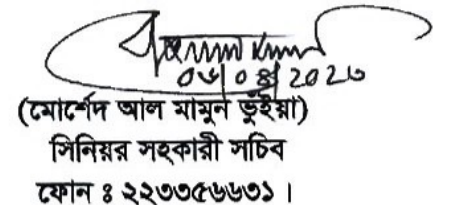 ০৬/০৪/২০২৩
(মোর্শেদ আল মামুন ভূঁইয়া)
সিনিয়র সহকারী সচিব
ফোন ঃ ২২৩৩৫৬৬৩১ ।